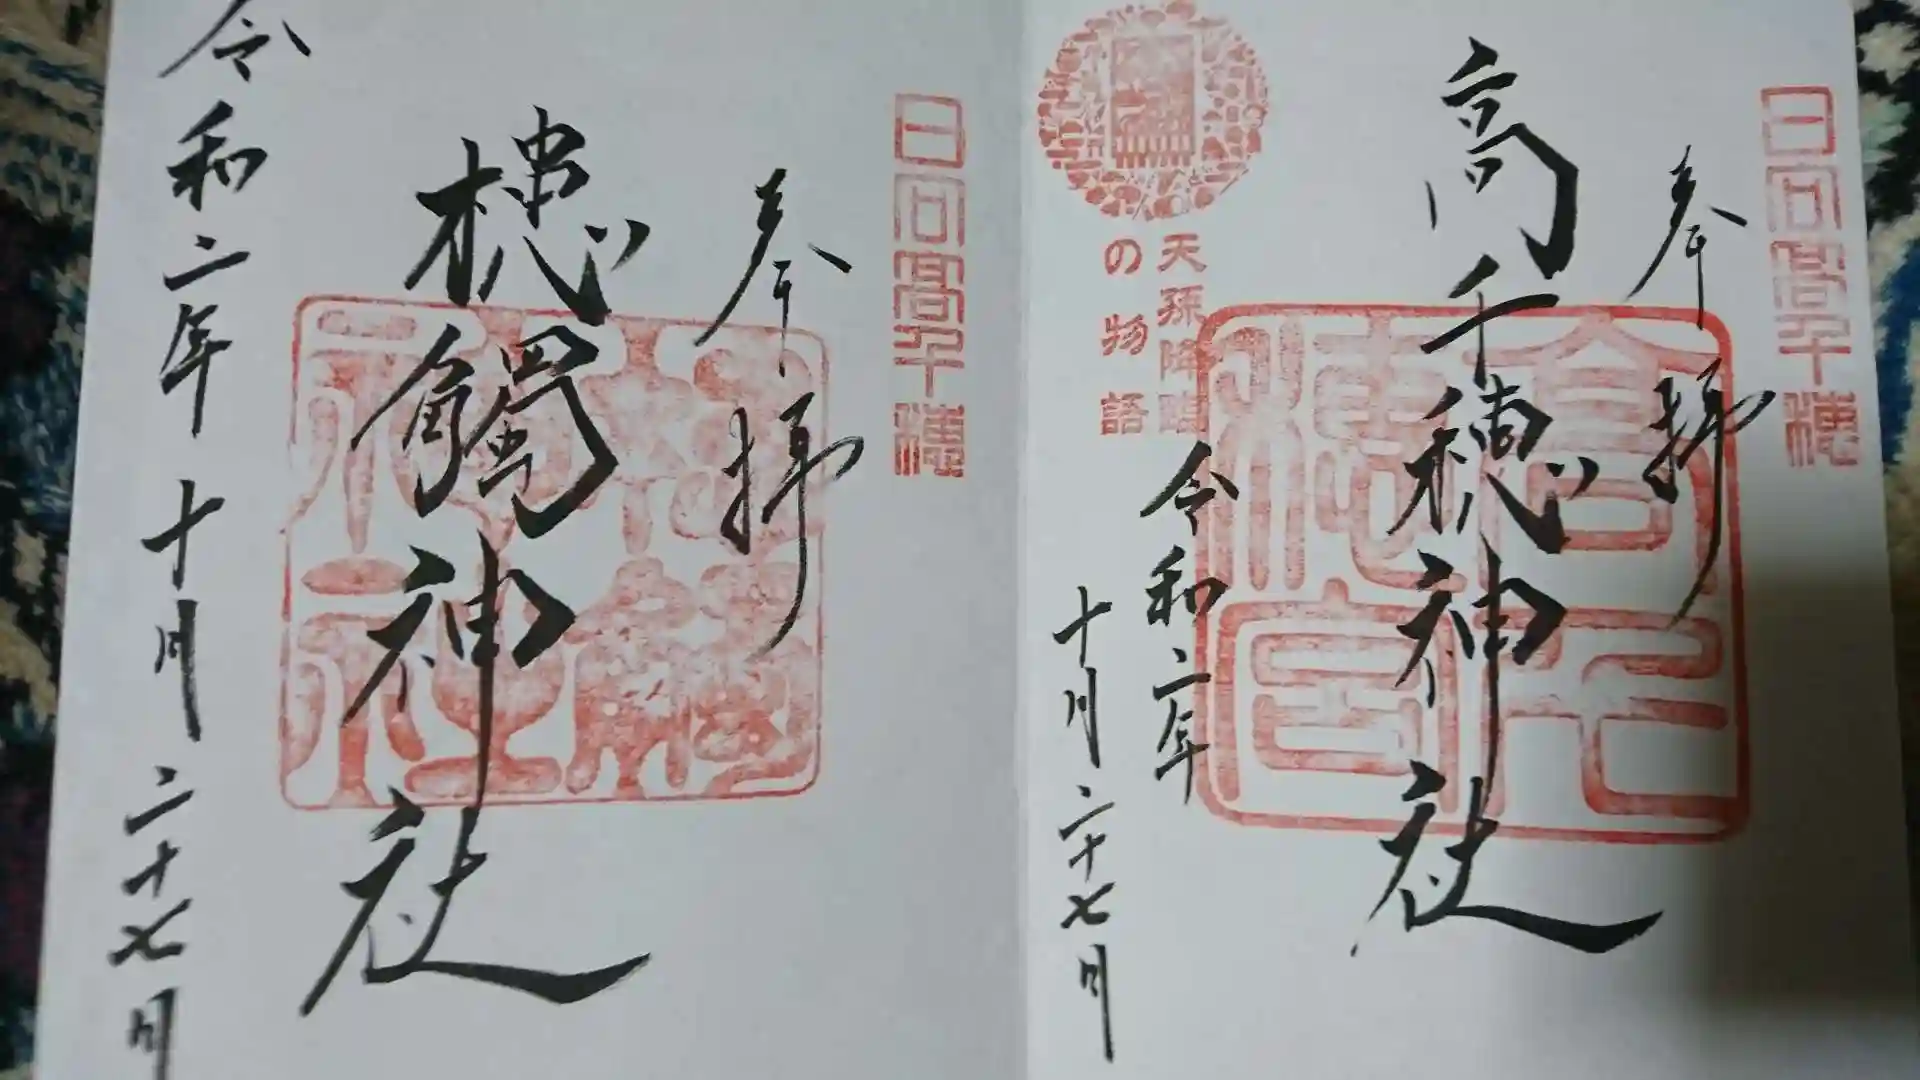 日向高千穂
奉拝
高千穂神社
高千穂宮
天孫降臨
の物語
令和二年
十月二十七日
日向高千穂
奉拝
槵觸神社
槵觸神社
令和二年十月二十七日